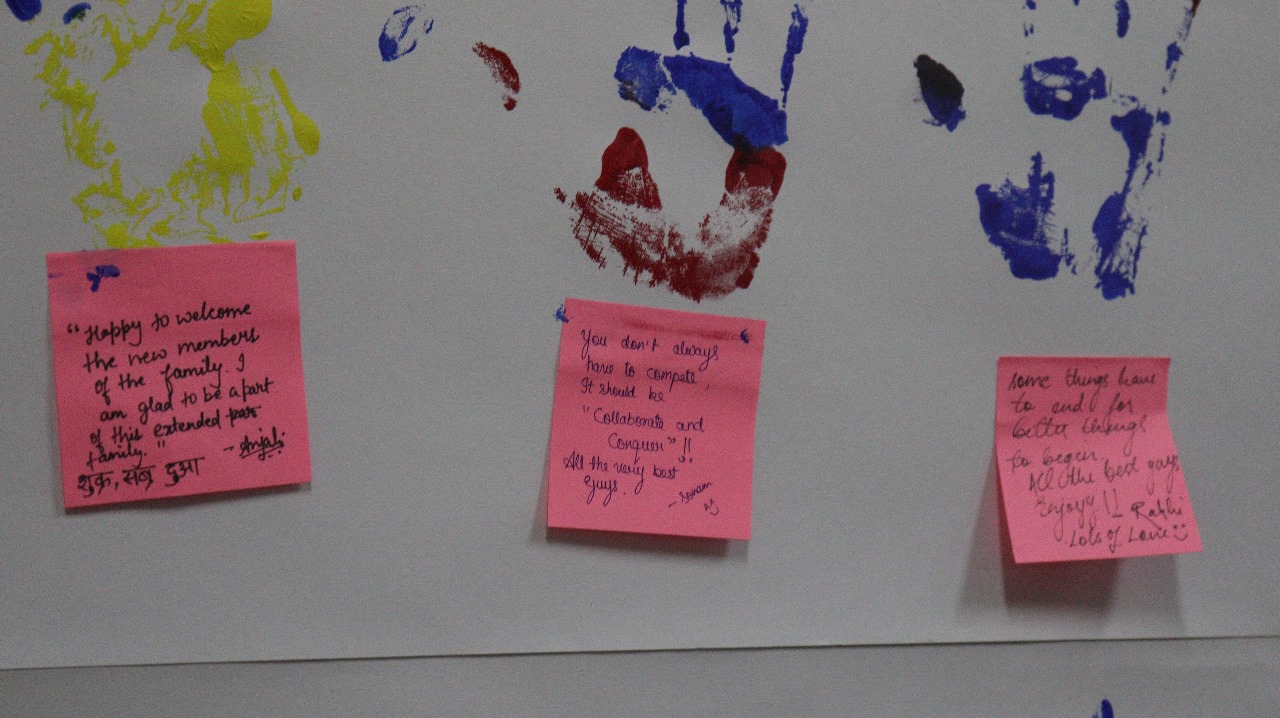 “Happy to welcome
the new members
of the family. I
am glad to be a part
of this extended par
family.”
-- Anjali
शुक्र, सब्र, दुआ
You don't always
have to compete,
It should be
“Collaborate and
Conquer”!!
All the very best
guys.
- Sonam
some things have
to end for
better things
to begin.
All the best guys
Enjoyy!!
Rakhi
Lots of Love